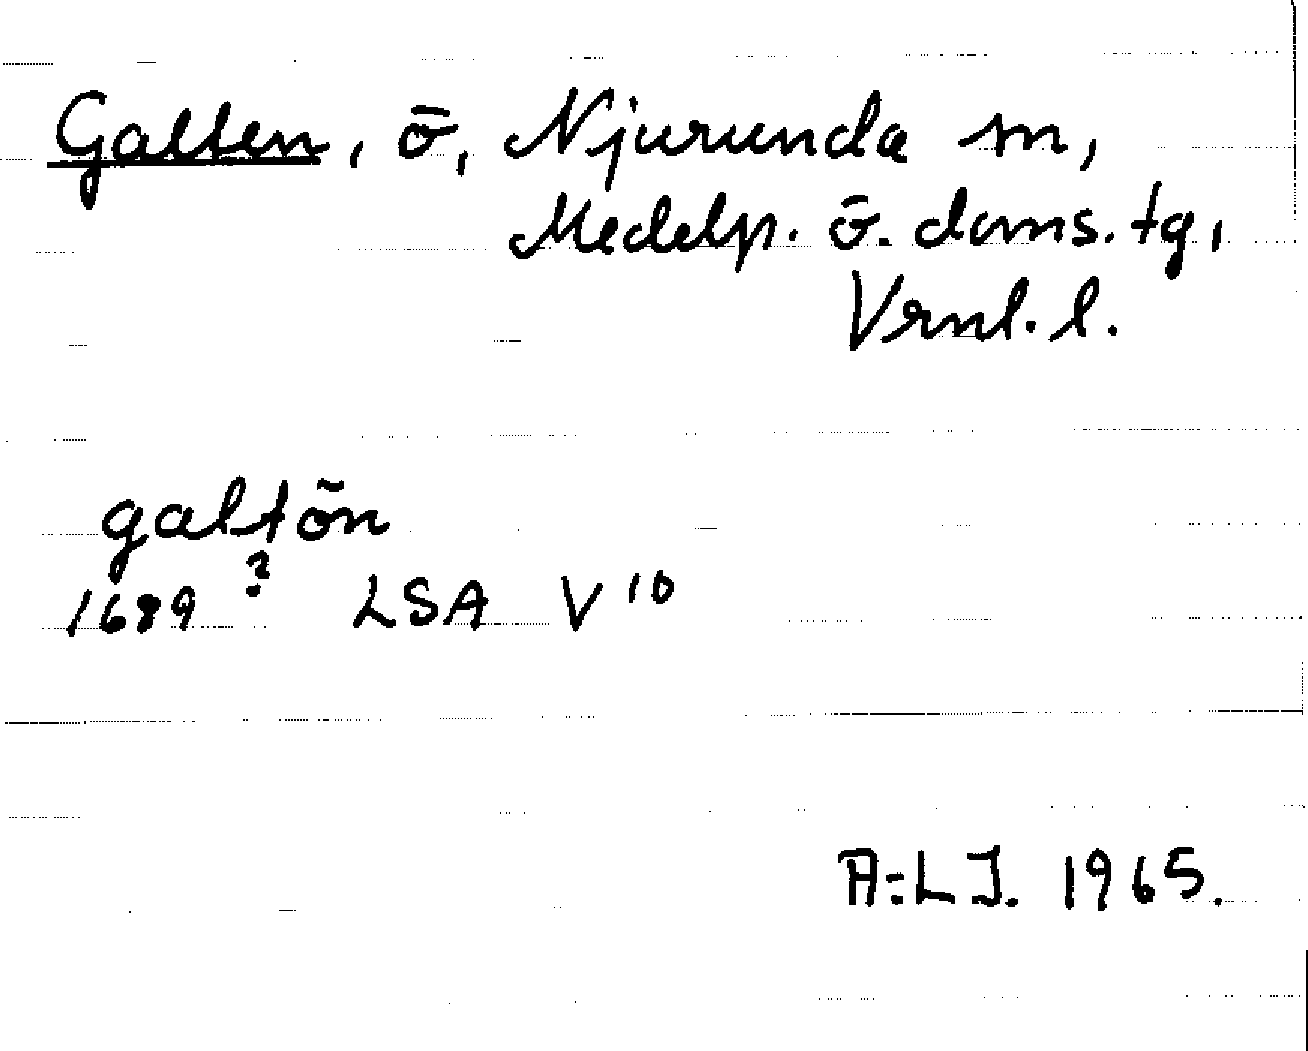 Galten, ö, Njurunda sn,
Medelp. ö. doms. tg,
Vrnl. l.
galtön
1689 ? LSA V 10
A:LJ. 1965.